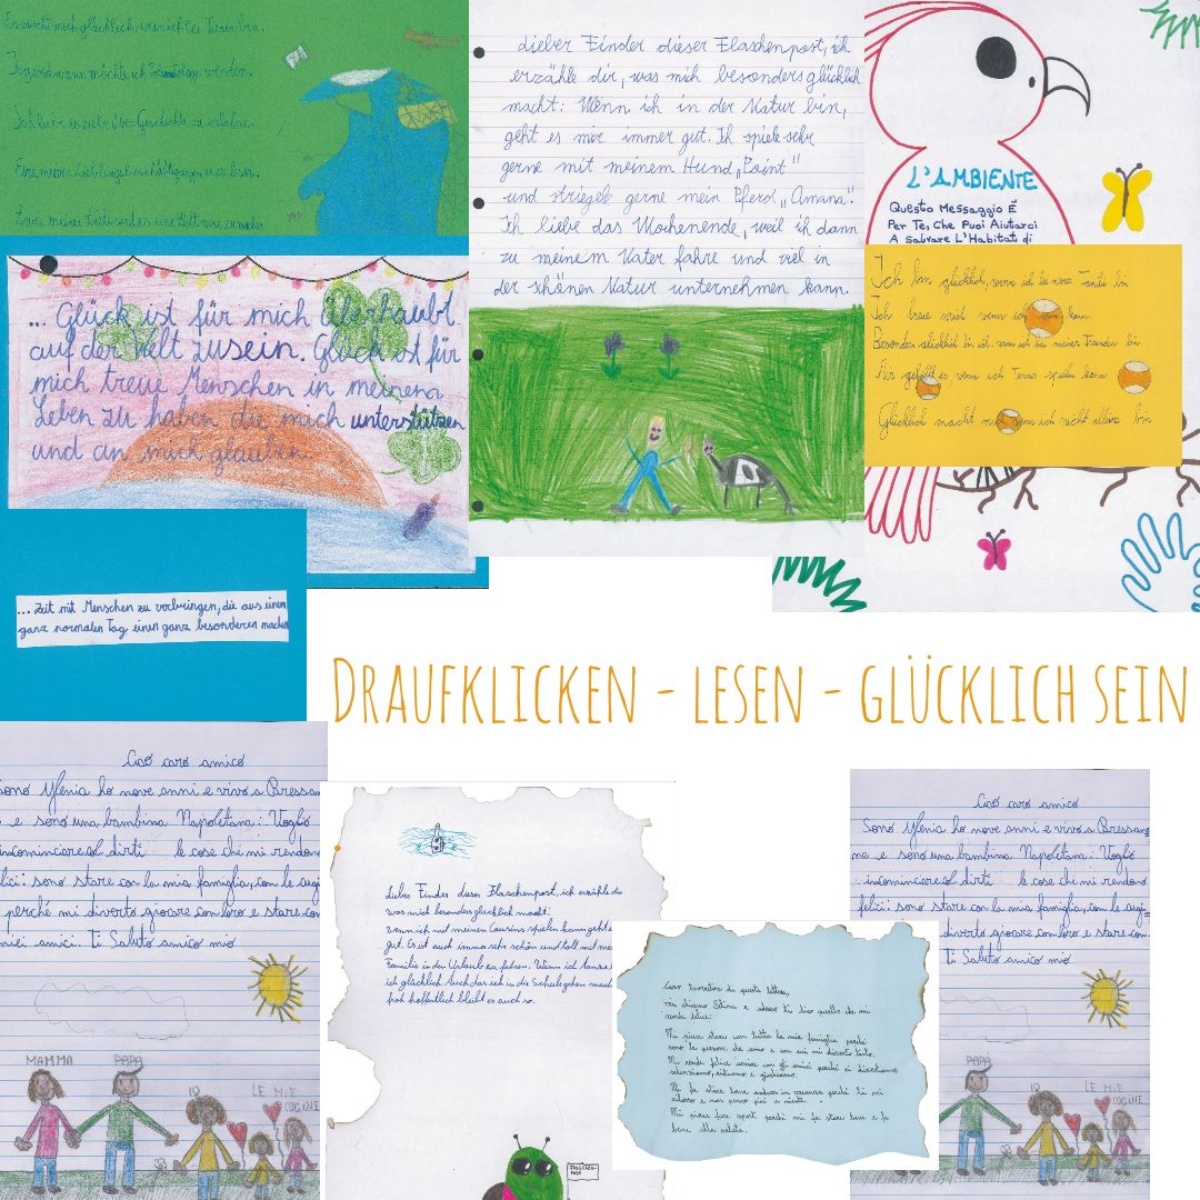 Es macht mich glücklich, wenn ich bei Tieren bin.
Irgendwann möchte ich werden.
Ich liebe es sehr über Geschichte zu erfahren.
Eine meiner Lieblingsbeschäftigungen ist es lesen.
... Glück ist für mich überhaupt
auf der Welt zusein. Glück ist für
mich treue Menschen in meinem
Leben zu haben die mich unterstützen
und an mich glauben.
... Zeit mit Menschen zu verbringen, die aus einem
ganz normalen Tag einen ganz besonderen machen
Lieber Finder dieser Flaschenpost, ich
erzähle dir, was mich besonders glücklich
macht: Wenn ich in der Natur bin,
geht es mir immer gut. Ich spiele sehr
gerne mit meinem Hund „Point"
und striegele gerne mein Pferd „Amana".
Ich liebe das Wochenende, weil ich dann
zu meinem Vater fahre und viel in
der schönen Natur unternehmen kann.
L'AMBIENTE
Questo Messaggio È
Per Te, Che Puoi Aiutarci
A Salvare L'Habitat di
Ich bin glücklich, wenn ich bei meiner Familie bin
Ich freue mich wenn ich kann.
Besonders glücklich bin ich wenn ich bei meinen Freunden bin
Mir gefällt es wenn ich Tennis spielen kann
Glücklich macht mich wenn ich nicht alleine bin
DRAUFKLICKEN - LESEN - GLÜCKLICH SEIN
Ciao caro amico
sono Yfenia ho nove anni e vivo a Bressan
e sono una bambina Napoletana: Voglio
incominciare a dirti le cose che mi rendono
lici: sono stare con la mia famiglia, con le cugi
perché mi diverto giocare con loro e stare con
miei amici. Ti Saluto amico mio
MAMMA
PAPÀ
IO
LE MIE
CUGINE
Lieber Finder dieser Flaschenpost, ich erzähle dir
was mich besonders glücklich macht:
wenn ich mit meinen Cousins spielen kann geht e
gut. Es ist auch immer sehr schön und toll mit mei
Familie in den Urlaub zu fahren. Wenn ich tanze
ich glücklich. Auch das ich in die Schule gehen
froh hoffentlich bleibt es auch so.
Caro di questa lettera,
mi chiamo e adesso ti dico quello che mi
rende felice:
Mi piace stare con tutta la mia famiglia perché
sono le persone che amo e con cui mi diverto tanto.
Mi rende felice uscire con gli amici perché ci divertiamo
scherziamo, ridiamo e giochiamo.
Mi fa stare bene andare in vacanza perché lì mi
rilasso e non penso più a niente.
Mi piace fare sport perché mi fa stare bene e fa
bene alla salute.
Ciao caro amico
Sono Yfenia ho nove anni e vivo a Bressano
ne e sono una bambina Napoletana: Voglio
incominciare a dirti le cose che mi rendono
felici: sono stare con la mia famiglia, con le cugi=
diverto giocare con loro e stare con
Ti Saluto amico mio
PAPÀ
IO
LE MIE
CUGINE